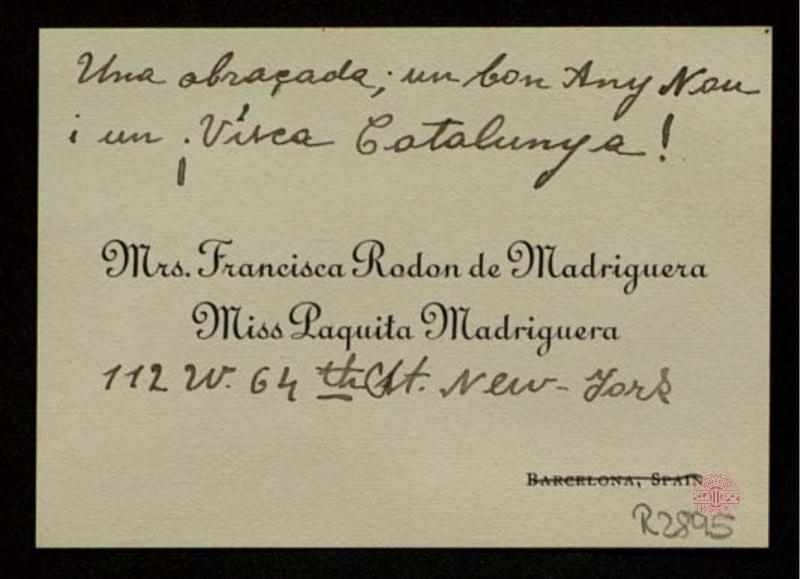 Una abraçada; un bon Any Nou
i un ¡Visca Catalunya!
Mrs. Francisca Rodon de Madriguera
Miss Paquita Madriguera
112 W. 64th St. New-York
Barcelona, Spain
R2895